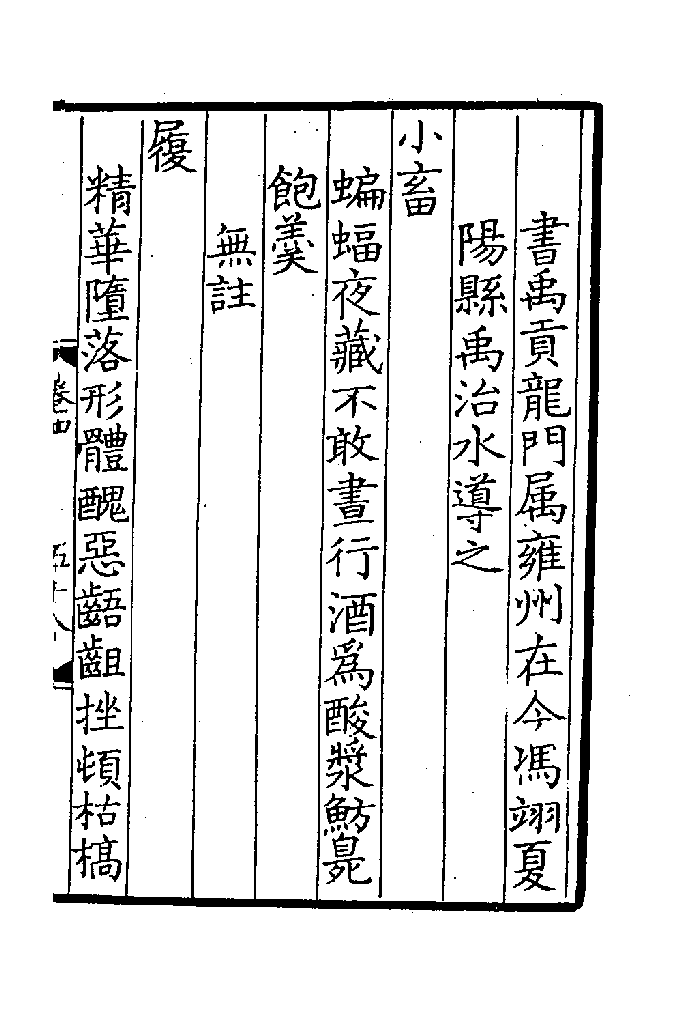 書禹貢龍門属雍州在今馮翊夏
陽縣禹治水導之
小畜
蝙蝠夜藏不敢晝行酒為酸漿魴臰
飽羹
無註
履
精華墮落形體醜惡齬齟挫頓枯槁
卷四
五十八